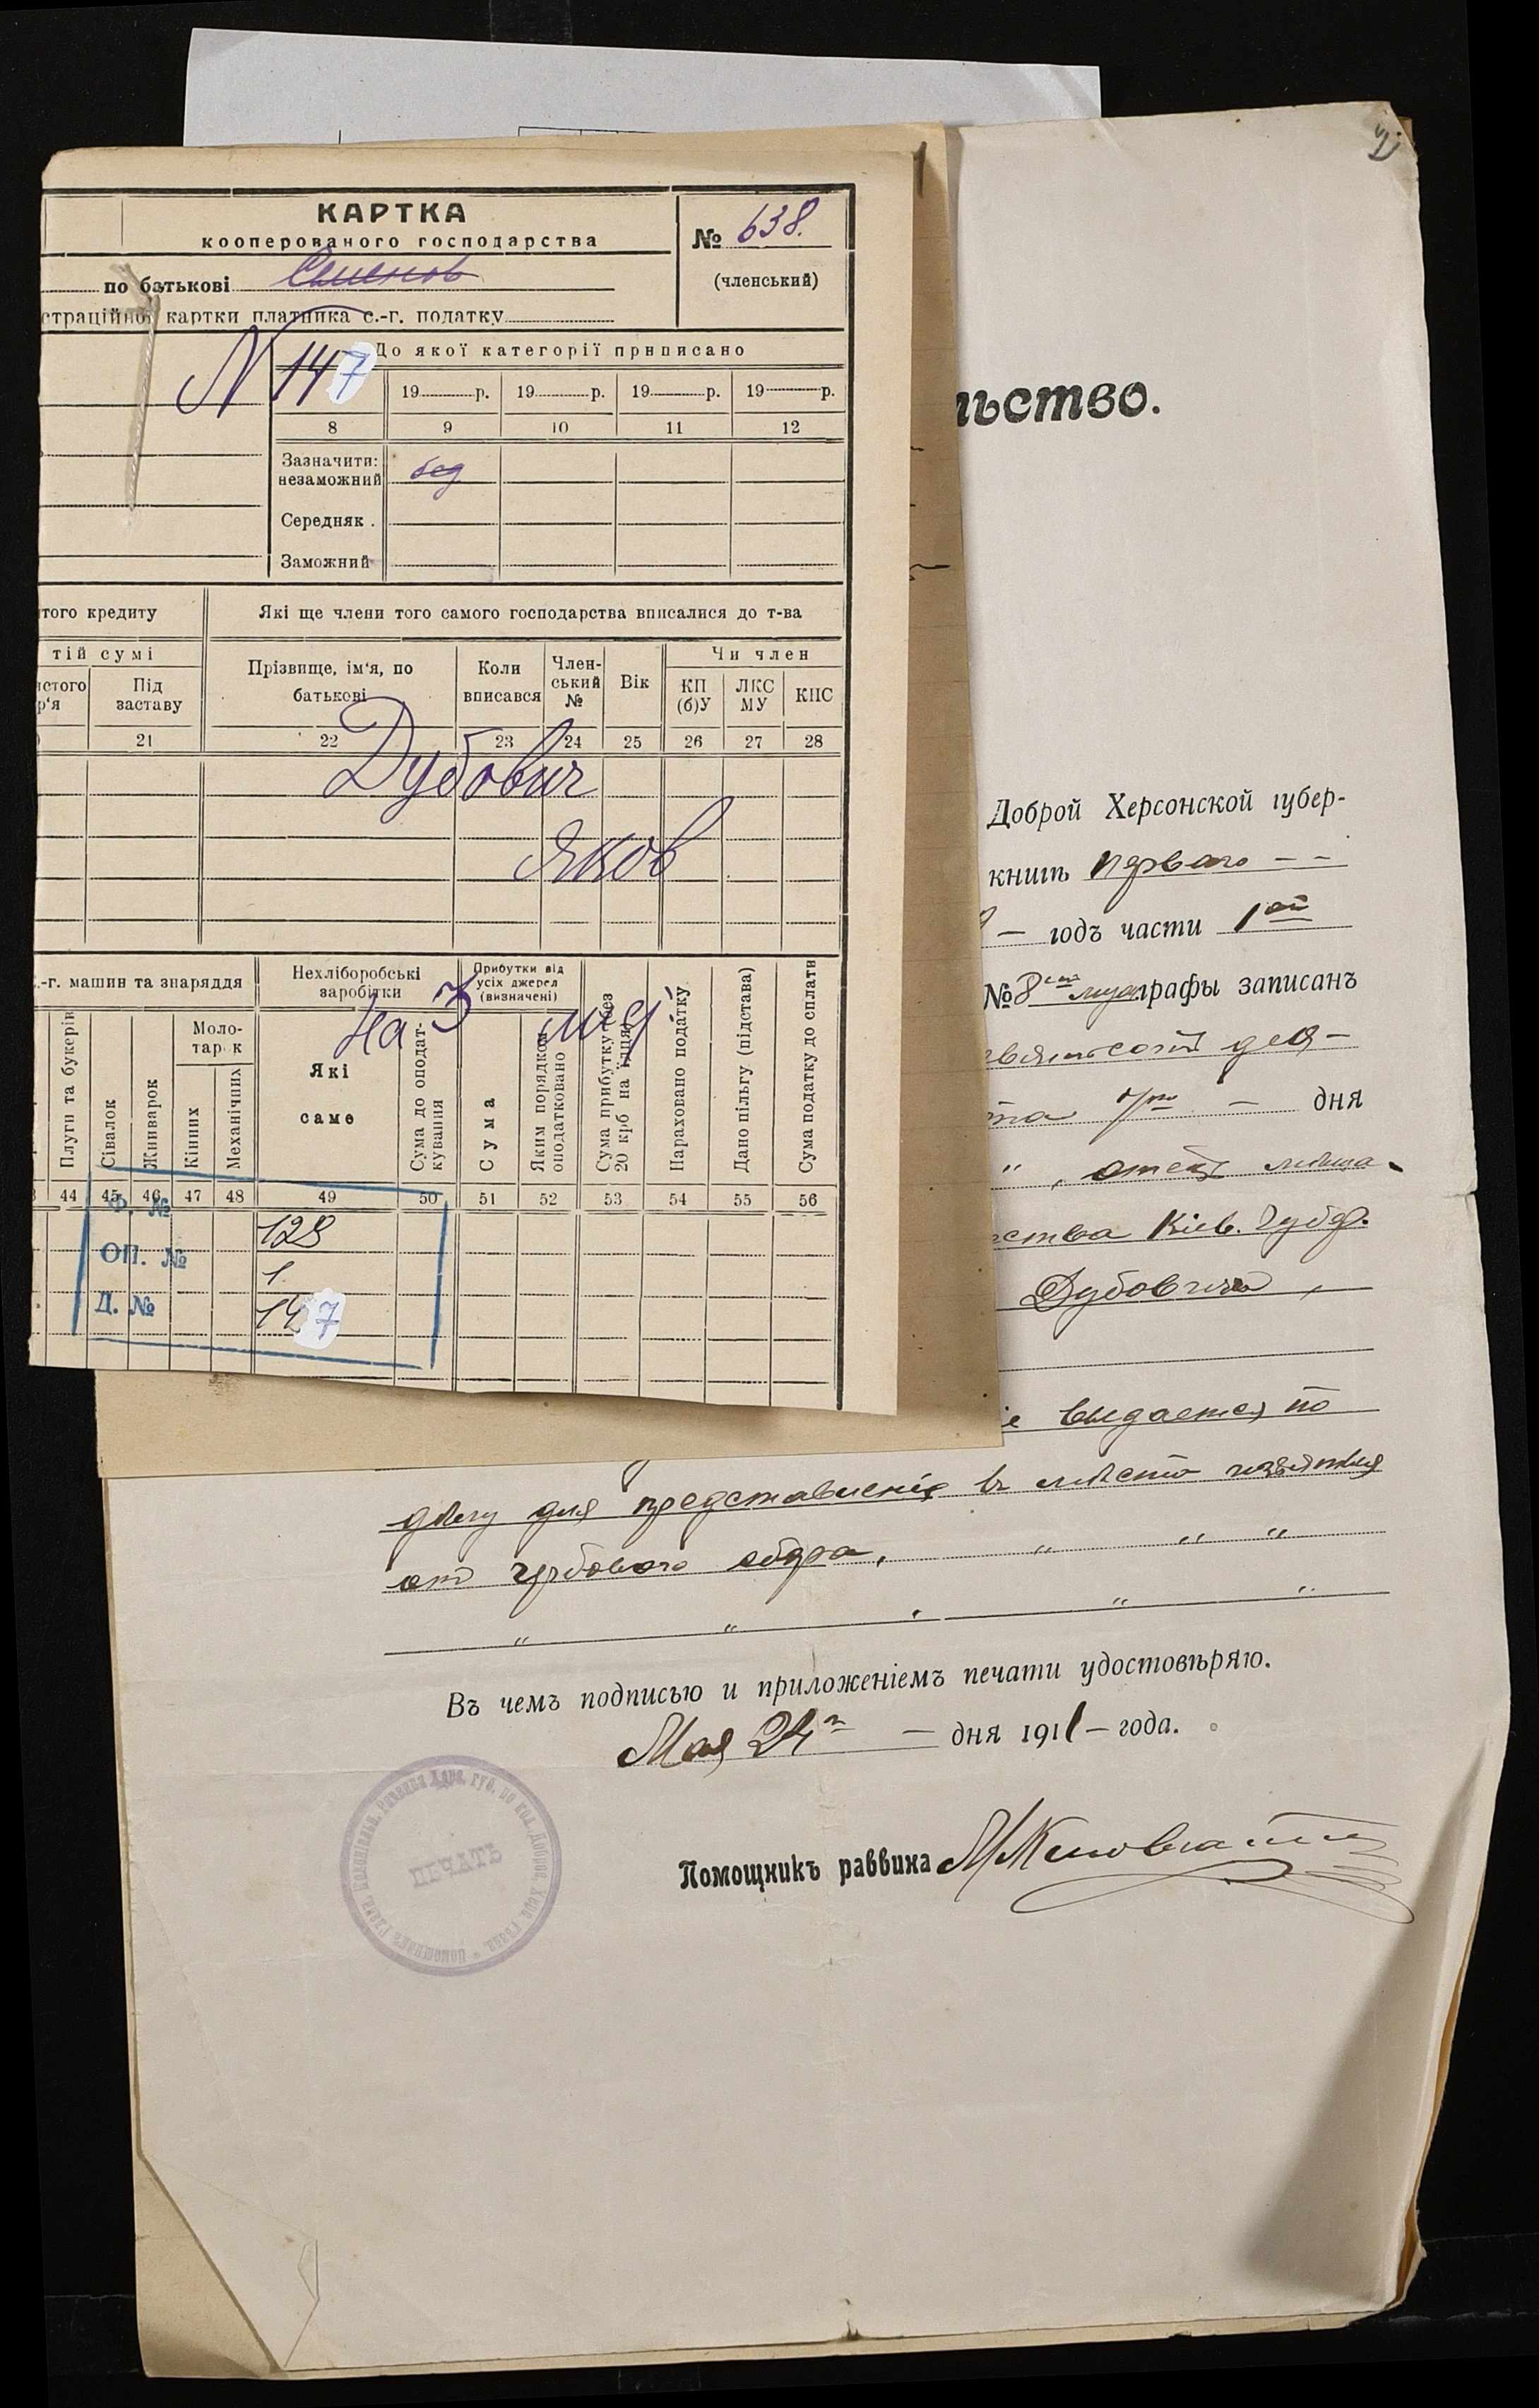 КАРТКА
кооперованого господарства
№ 638.
(членський)
по батькові Семенов
страційної картки платника с.-г. податку
N 147
До якої категорії приписано
19 р. 19 р. 19 р. 19 р.
8 9 10 11 12
Зазначити:
незаможний бед
Середняк.
Заможний
того кредиту
Які ще члени того самого господарства вписалися до т-ва
тій сумі
Під заставу
Прізвище, ім'я, по батькові
Коли вписався
Член-ський №
Вік
Чи член
КП (б)У
ЛКС МУ
КНС
21 22 23 24 25 26 27 28
Дубович
Яков
.-г. машин та знаряддя
Нехліборобські заробітки
Прибутки від усіх джерел (визначені)
На 3
Плуги та букерів
Сівалок
Жниварок
Моло-тарок
Кінних
Механічних
Які саме
Сума до оподат-кування
Сума
Яким порядком оподатковано
Сума прибутку без 20 крб на їдця
Нараховано податку
Дано пільгу (підстава)
Сума податку до сплати
44 45 46 47 48 49 50 51 52 53 54 55 56
Ф. № 128
ОП. № 1
Д. № 147
льство.
Доброй Херсонской губер-
книгѣ перваго - -
— годъ части 1ой
№ 8 графы записанъ
дня
отецъ мѣща
ства Кіев. Губер.
Дубович
выдается по
дѣлу для представленія в мѣсто изъятия
от гербового сбора, " " "
" " " "
Въ чемъ подписью и приложеніемъ печати удостовѣряю.
Мая 24 — дня 1911 — года.
ПЕЧАТЬ
Помощникъ раввина